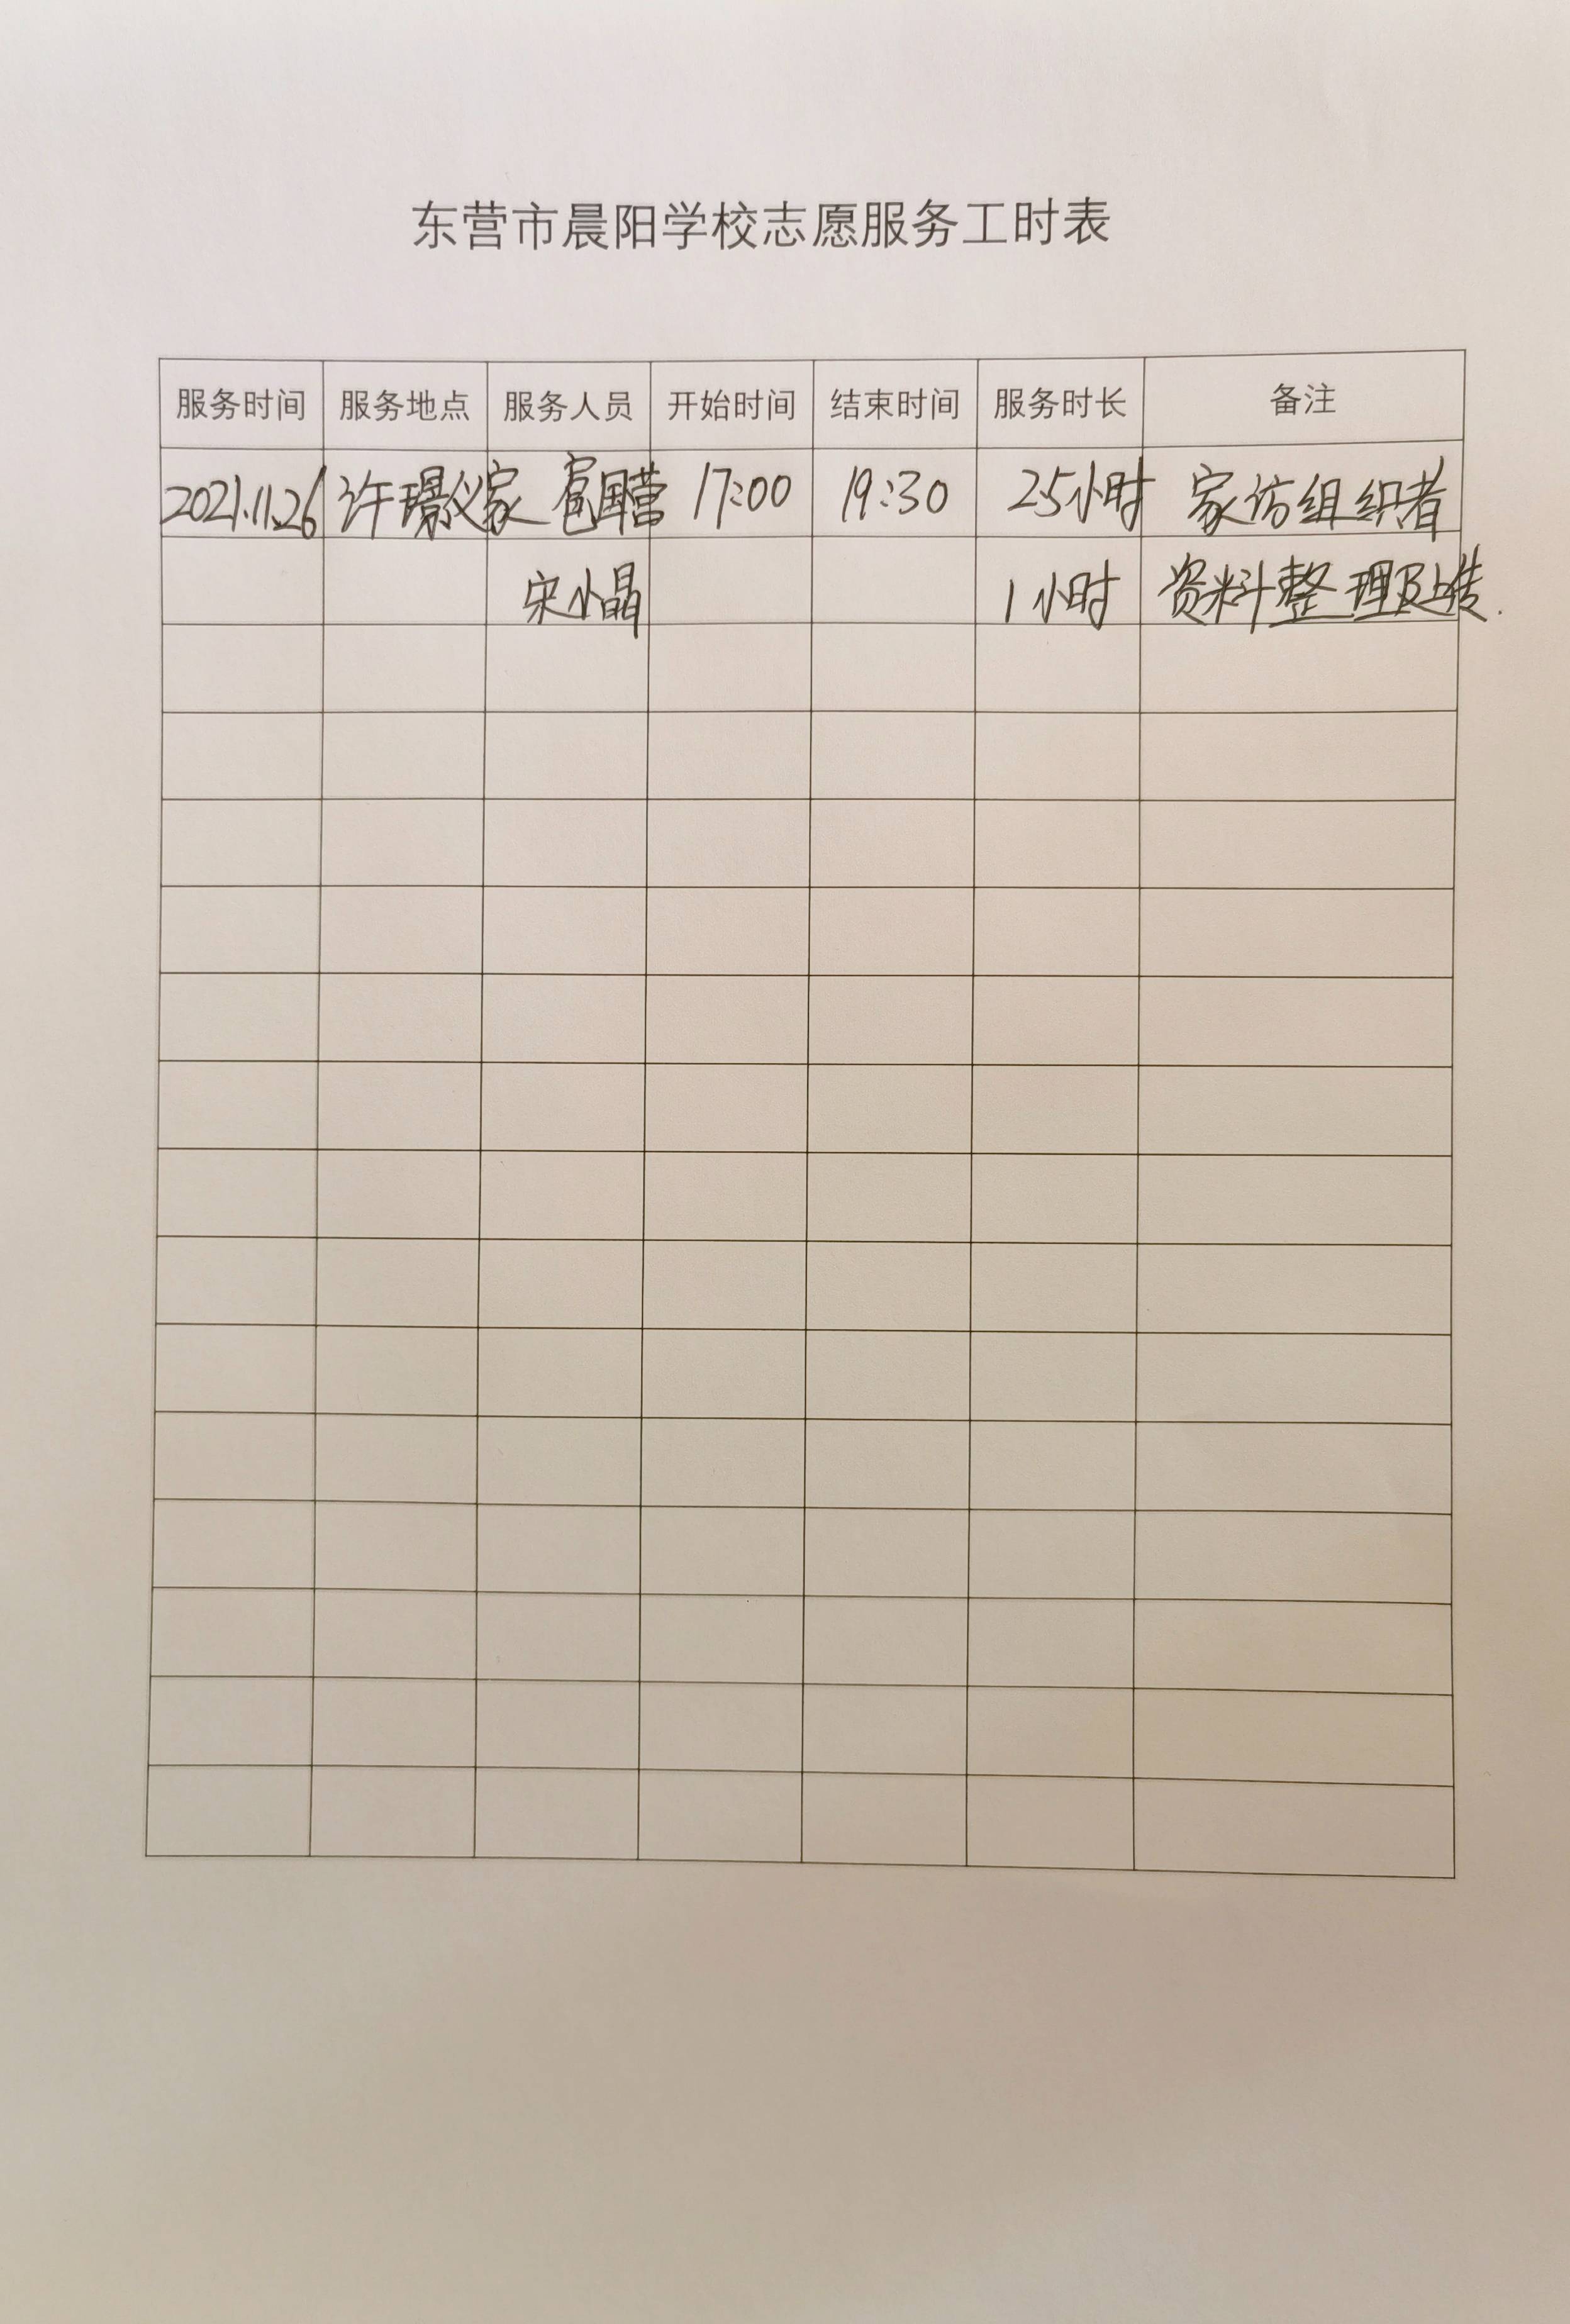 东营市晨阳学校志愿服务工时表
服务时间 服务地点 服务人员 开始时间 结束时间 服务时长 备注
2021.11.26 许璟仪家 国营 17:00 19:30 2.5小时 家访组织者
宋小晶 1小时 资料整理及上传.